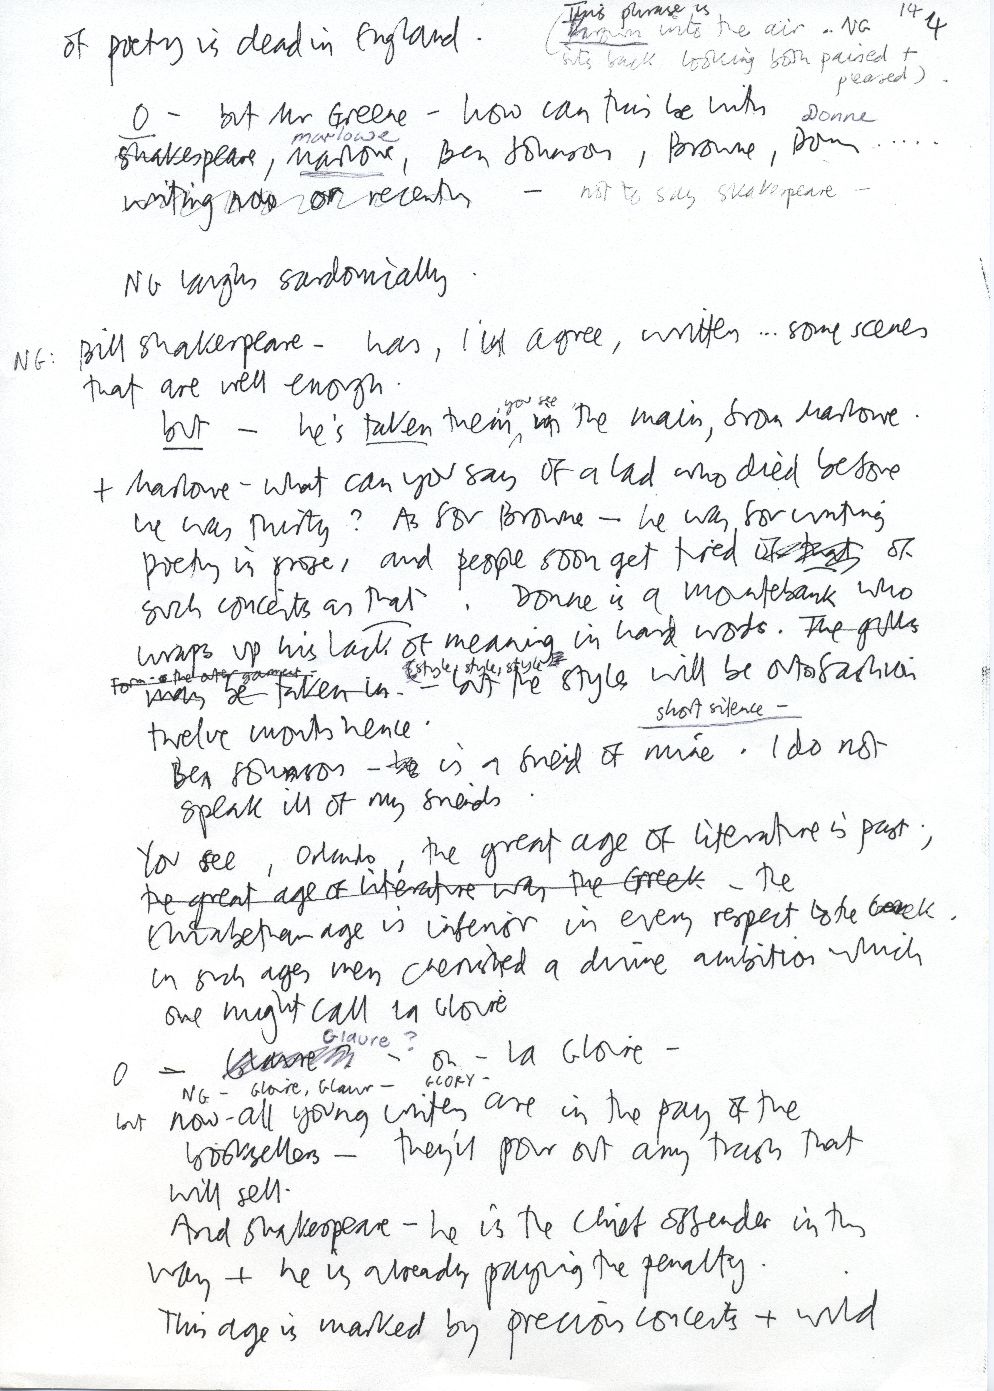 14 4
of poetry is dead in England.
(This phrase is
thrown into the air .. NG
sits back looking both pained +
pleased).
O - but Mr Greene - how can this be with
marlowe Donne
Shakespeare, Marlowe, Ben Johnson, Browne, Donn .....
writing now or recently - not to say Shakespeare -
NG laughs sardonically.
NG: Bill Shakespeare - has, I'll agree, written ... some scenes
that are well enough.
you see
but - he's taken them, in the main, from Marlowe.
+ Marlowe - what can you say of a lad who died before
he was thirty? As for Browne - he was for writing
poetry in prose, and people soon get tired of that of
such conceits as that. Donne is a mountebank who
wraps up his lack of meaning in hard words. The gulls
Form is the outer garment - (style, style, style)
may be taken in. - but the styles will be out of fashion
short silence -
twelve months hence.
Ben Johnson - he is a friend of mine. I do not
speak ill of my friends.
You see, Orlando, the great age of literature is past;
the great age of literature was the Greek - the
Elizabethan age is inferior in every respect to the Greek.
In such ages men cherished a divine ambition which
one might call La Gloire
Glaure?
O - Glaure - oh - La Gloire -
NG - Gloire, Glaur - GLORY -
but now - all young writers are in the pay of the
booksellers - they'll pour out any trash that
will sell.
And Shakespeare - he is the chief offender in this
way + he is already paying the penalty.
This age is marked by precious conceits + wild